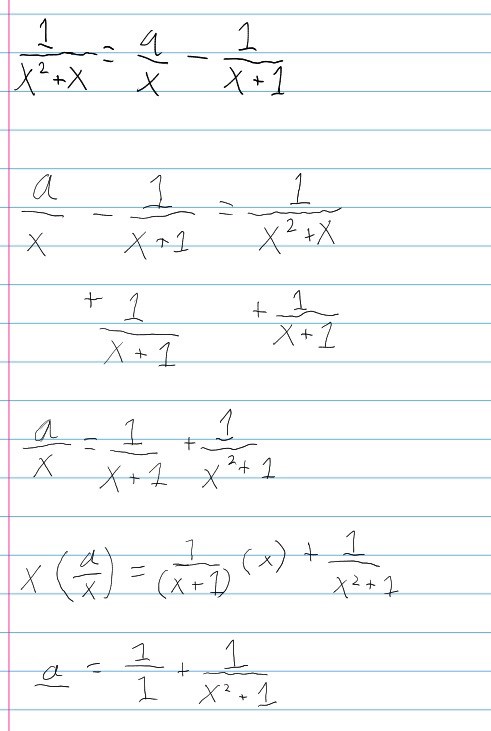 1/(x²+x) = a/x − 1/(x+1)
a/x − 1/(x+1) = 1/(x²+x)
+ 1/(x+1) + 1/(x+1)
a/x = 1/(x+1) + 1/(x²+1)
x(a/x) = 1/(x+1) (x) + 1/(x²+1)
a = 1/1 + 1/(x²+1)